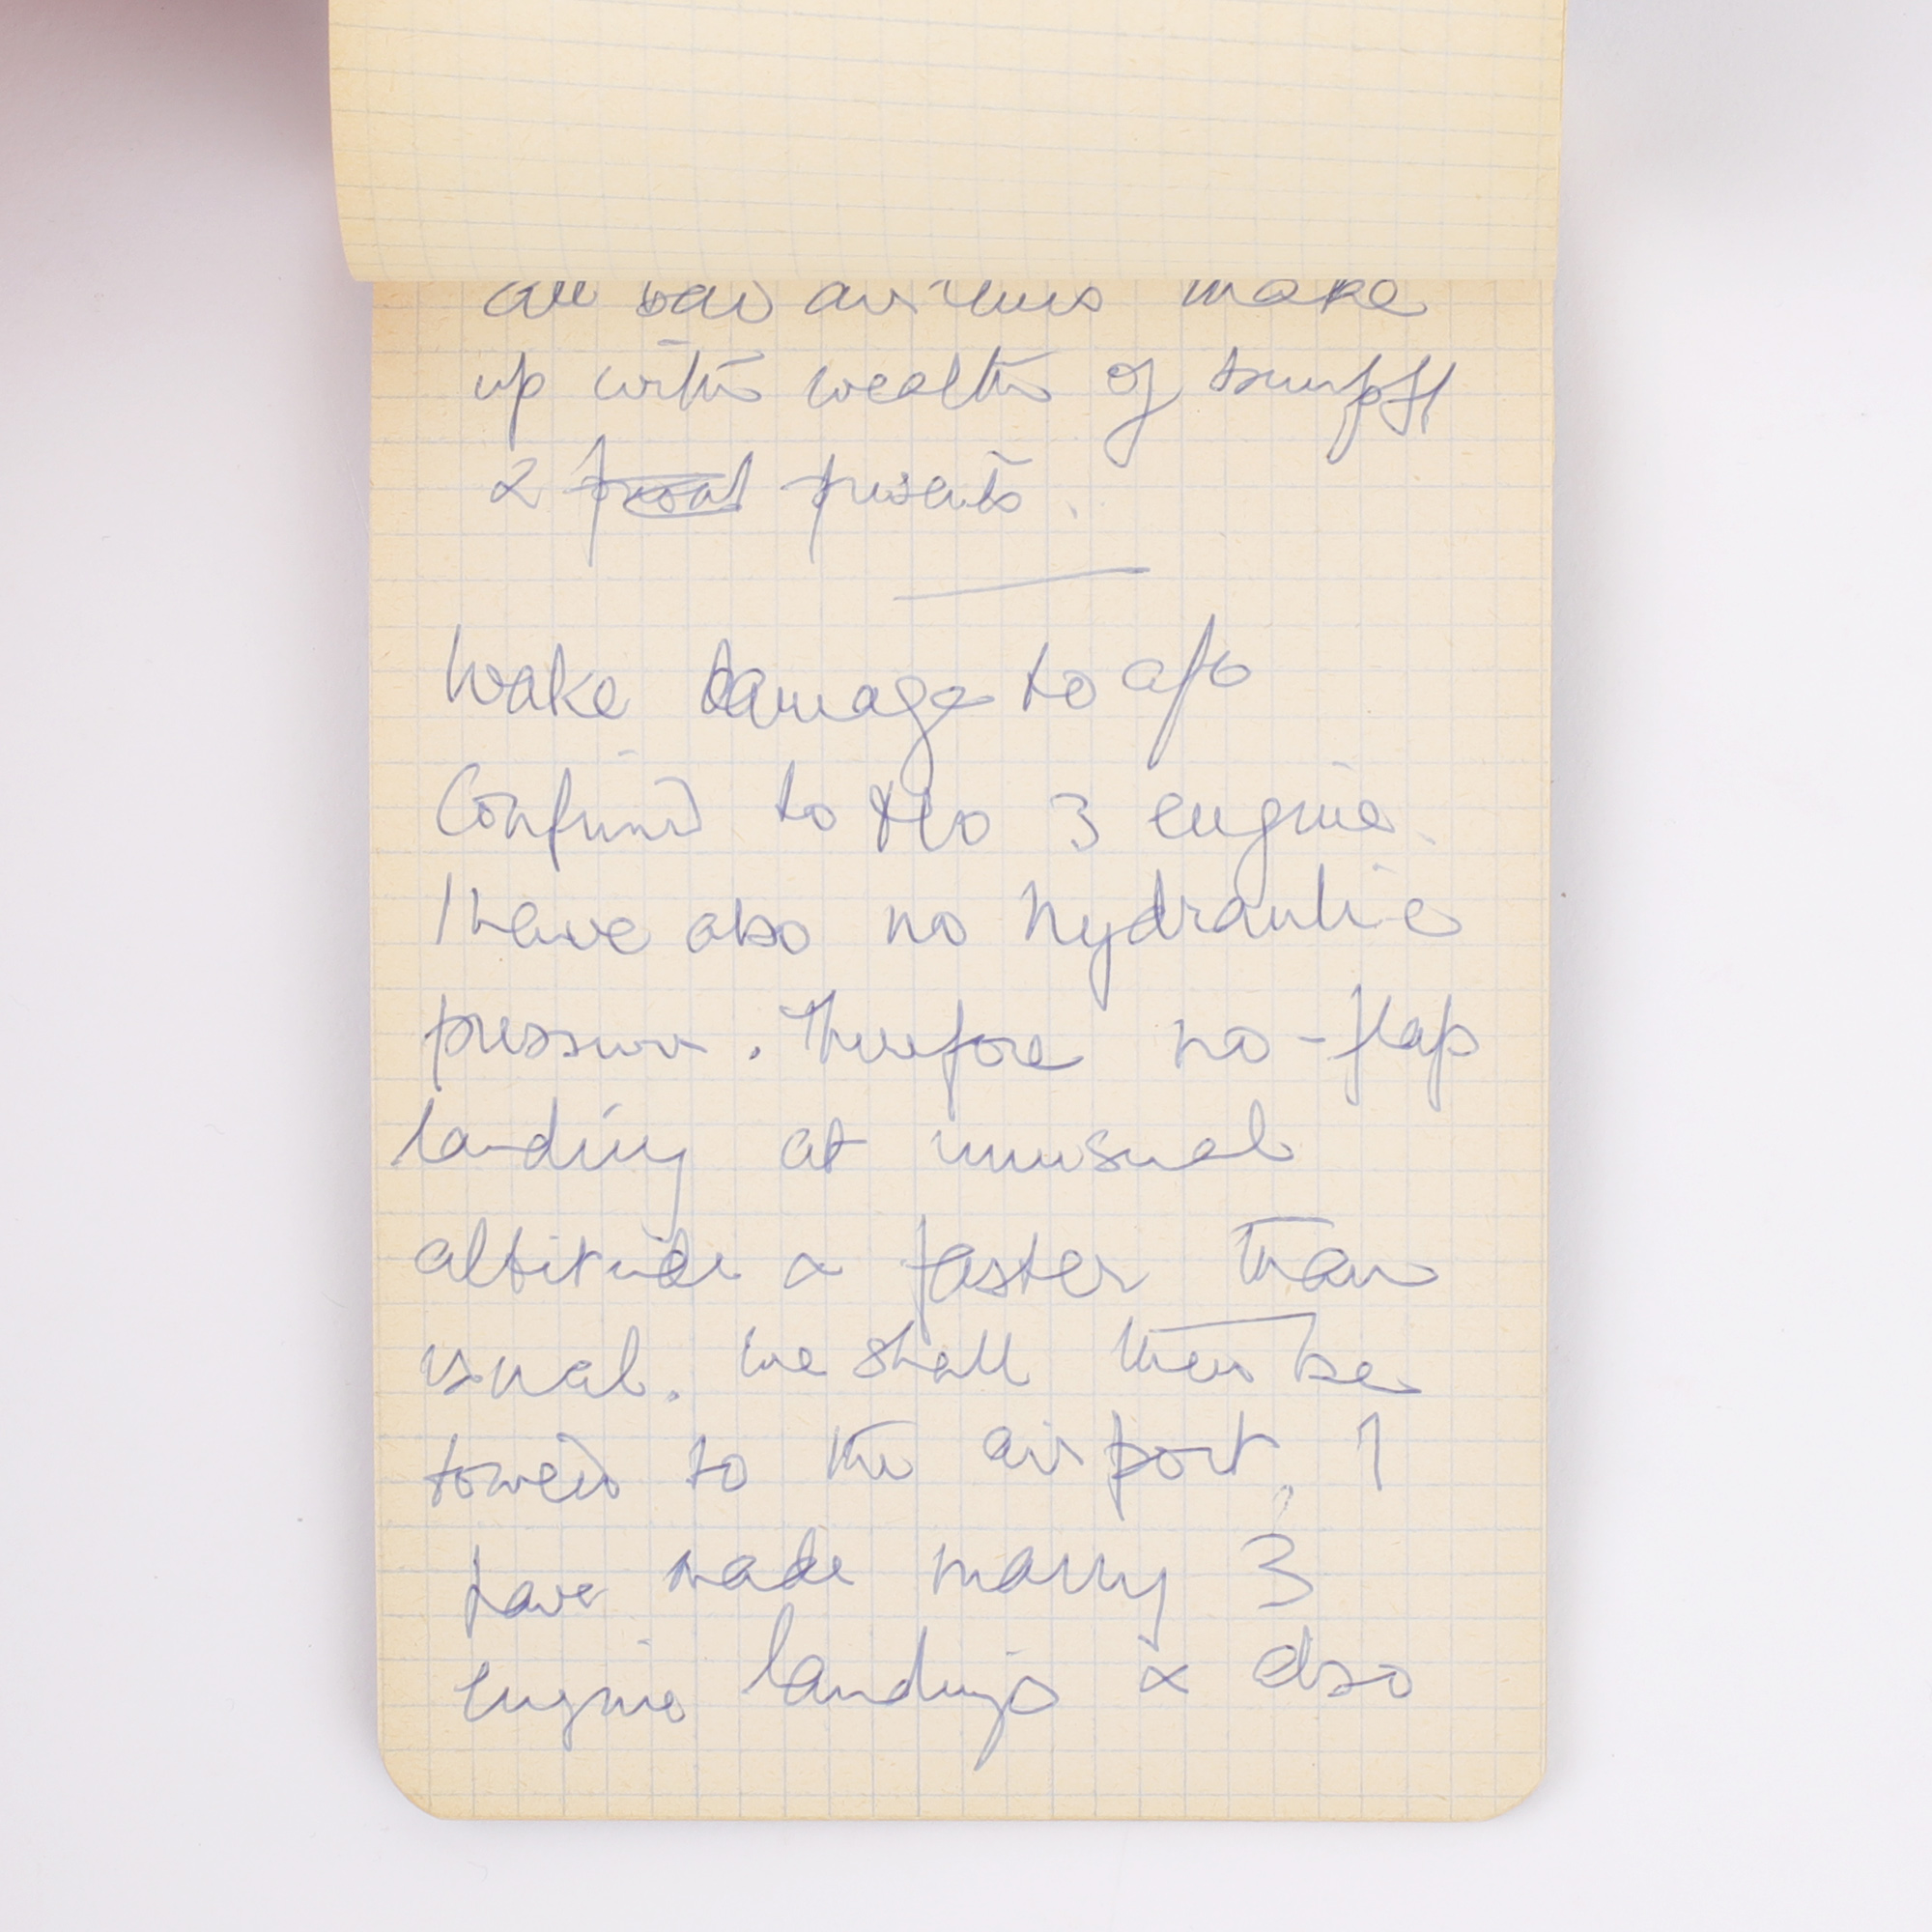 all bad airlines make
up with wealth of bumpff
& presents.
Wake damage to a/c
Confined to No 3 engine.
I have also no hydraulic
pressure. Therefore no-flap
landing at unusual
altitude & faster than
usual. We shall then be
towed to the airport. I
have made many 3
engine landings & also